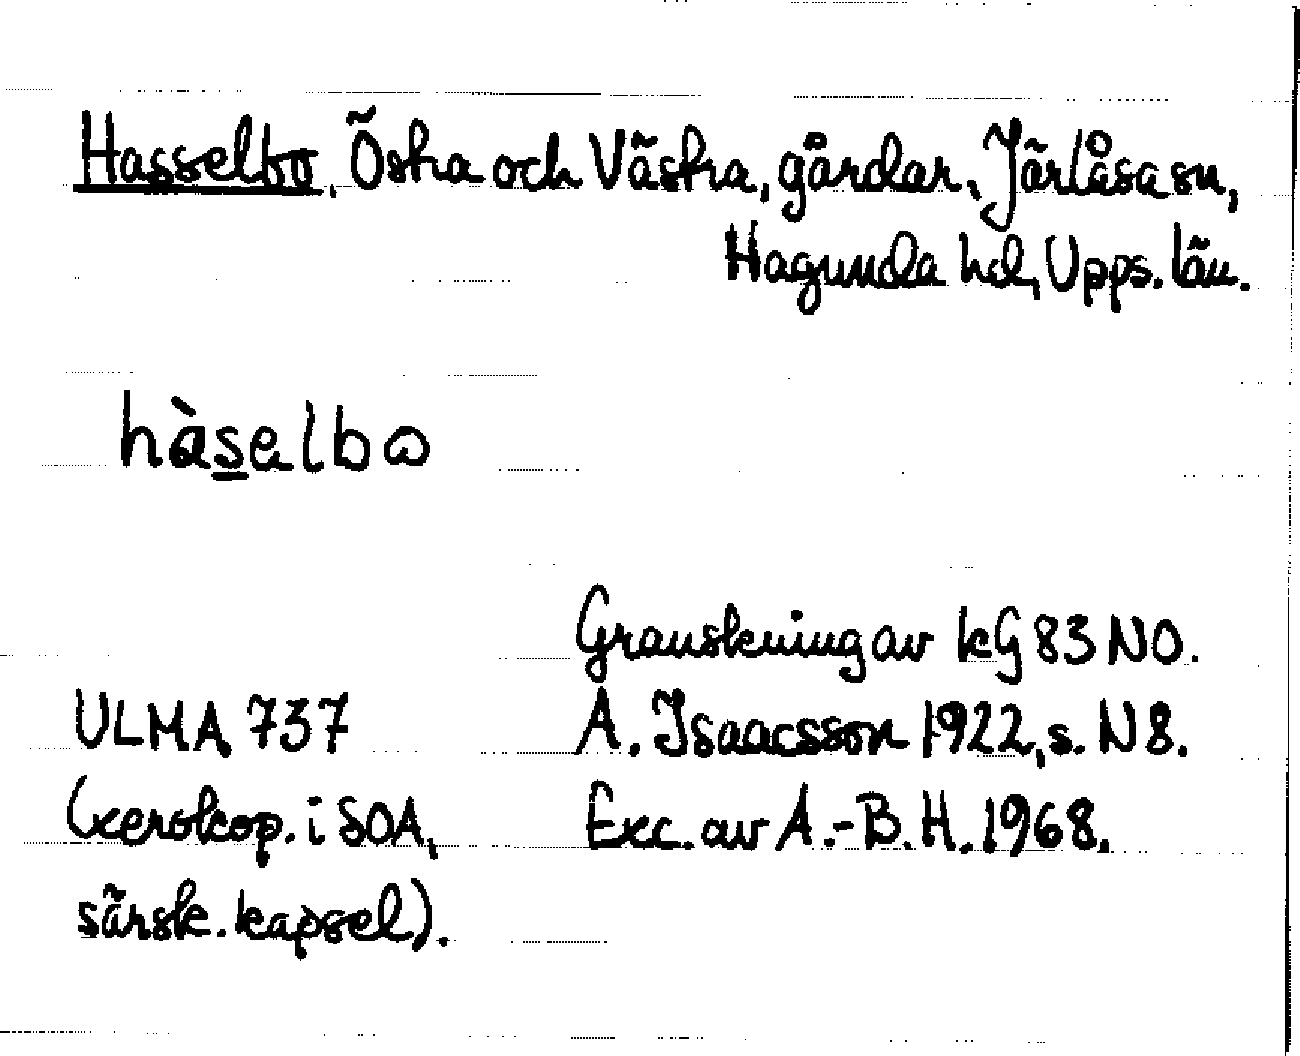 Hasselbo, Östra och Västra, gårdar, Järlåsa sn,
Hagunda hd, Upps. län.
hàs̲elbω
Granskning av kG 83 NO.
ULMA 737 A. Isaacsson 1922, s. N 8.
(xerokop. i SOA, Exc. av A.-B. H. 1968.
särsk. kapsel).